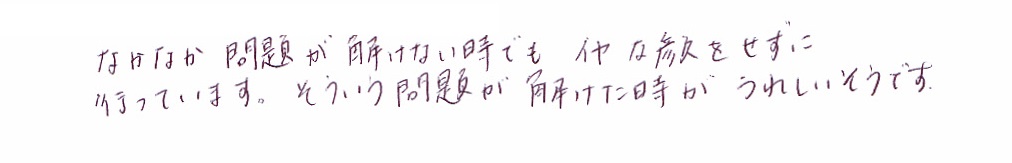 なかなか問題が解けない時でもイヤな顔をせずに
行っています。そういう問題が解けた時がうれしいそうです.